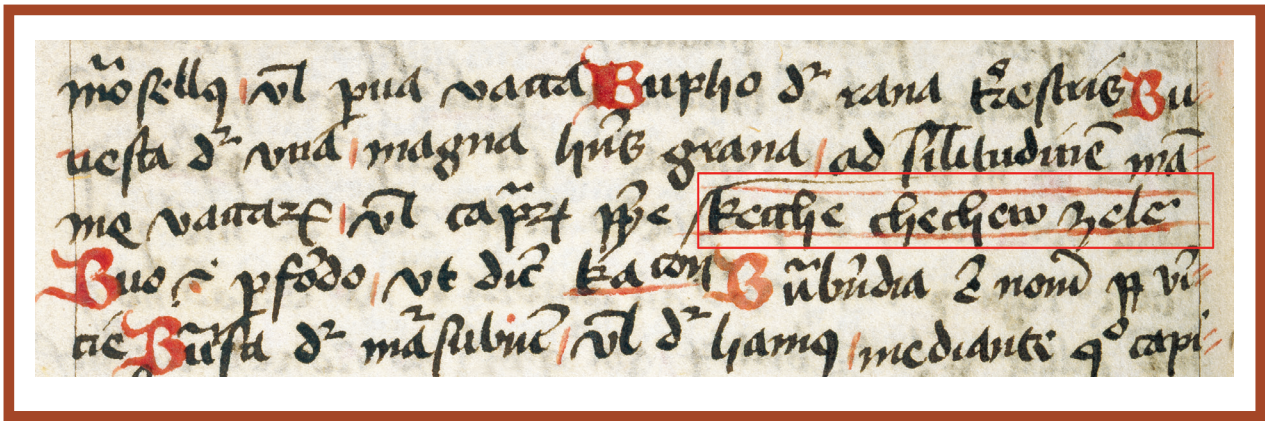 mo sellus vl pua vacca Bupho dr rana trestris Bu
testa dr vua magna hns grana ad silitudinē mā
me vaccarum vl caprarum ppe kecche chechew zele
Buo i pfōdo vt dic ka con Būbūdia ē nom pp vi
cie Bursa dr marsubiū vl dr hamus mediante qo capi